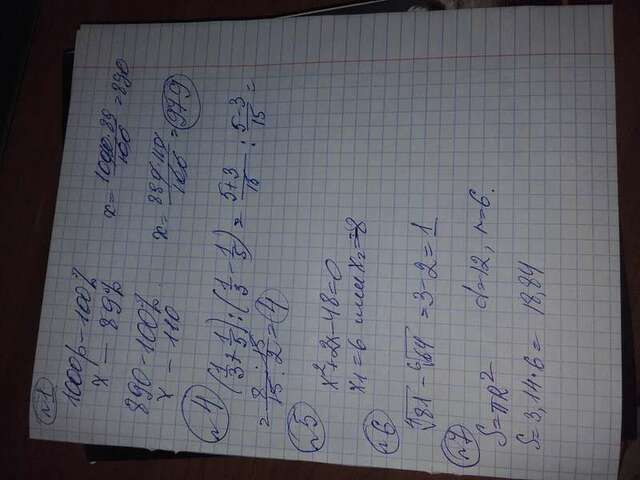 №1
1000р – 100%
х – 89%
х = 1000·89/100 = 890
890 – 100%
х – 110
х = 890·110/100 = 979
№4
(1/3 + 1/5) : (1/3 - 1/5) = 5+3/15 : 5-3/15 =
= 8 · 15/15 · 2 = 4
№5
х²+2х-48=0
х1=6 или х2=-8
№6
⁴√81 - ⁶√64 = 3-2=1
№7
S=πR² d=12, r=6.
S=3,14·6= 18,84